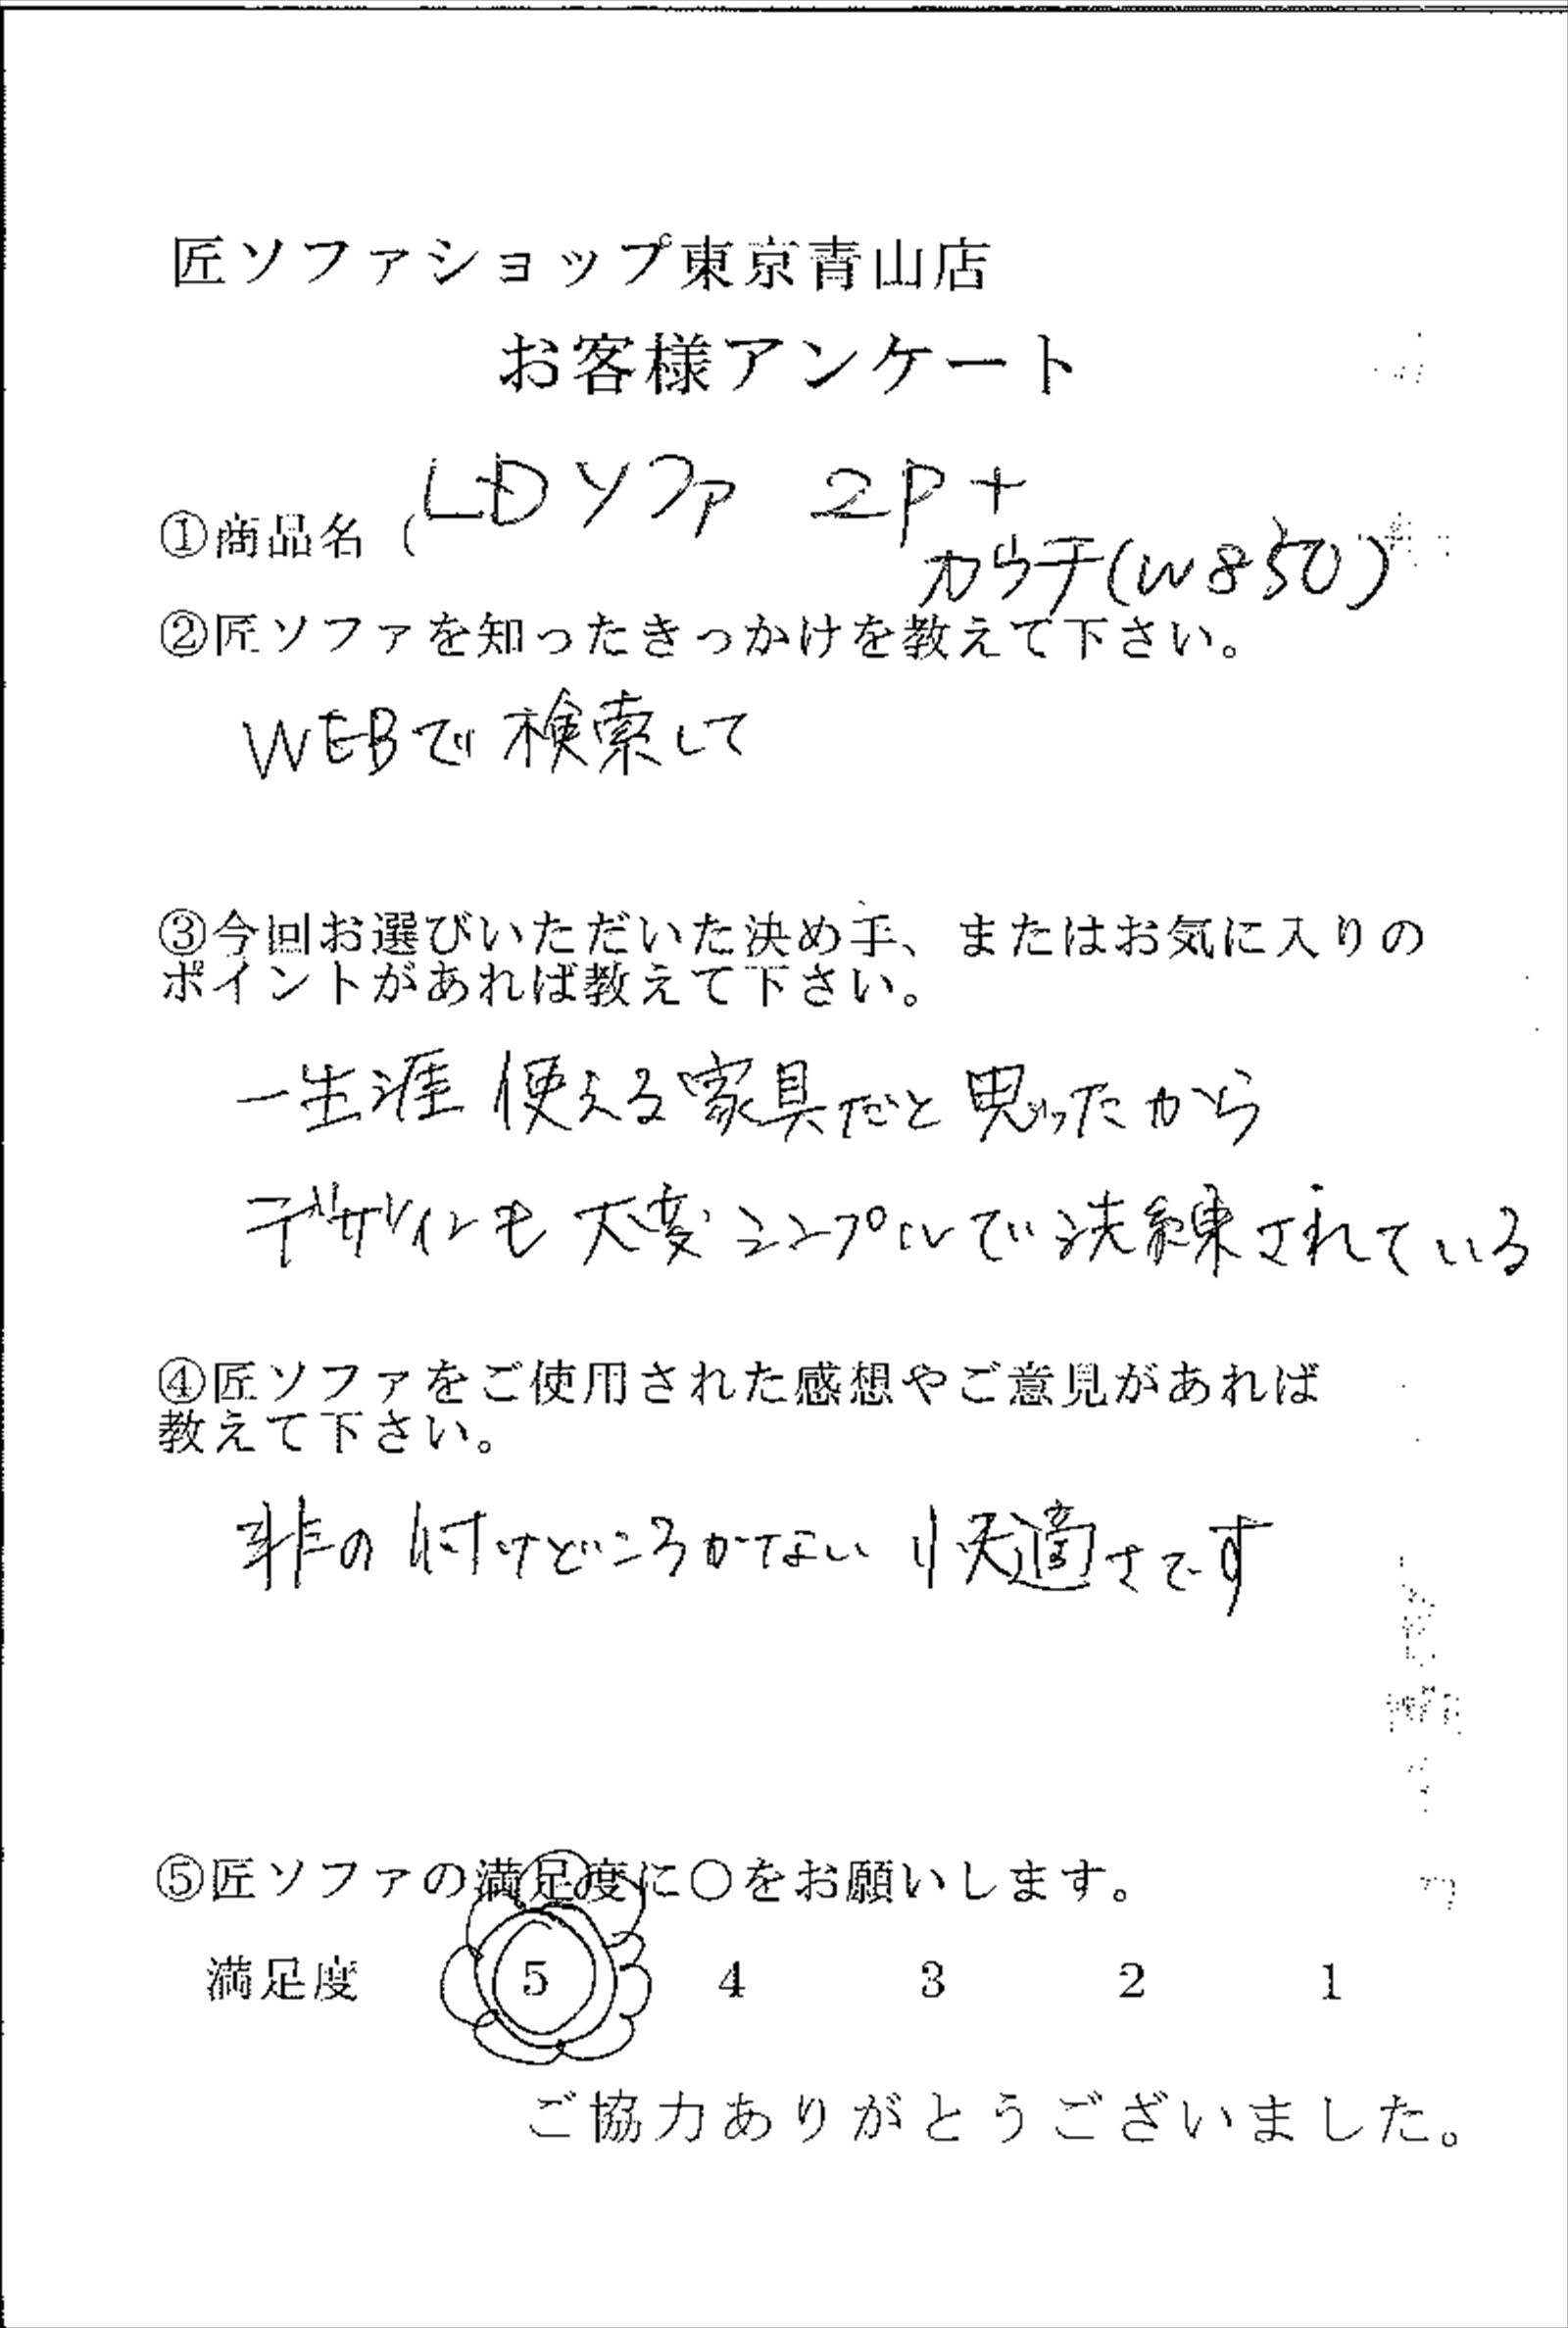 匠ソファショップ東京青山店
お客様アンケート
①商品名 (LDソファ 2P+
カウチ(W850)
②匠ソファを知ったきっかけを教えて下さい。
WEBで検索して
③今回お選びいただいた決め手、またはお気に入りの
ポイントがあれば教えて下さい。
一生涯使える家具だと思ったから
デザインも大変シンプルで洗練されている
④匠ソファをご使用された感想やご意見があれば
教えて下さい。
非の付けどころがない快適さです
⑤匠ソファの満足度に〇をお願いします。
満足度 5 4 3 2 1
ご協力ありがとうございました。